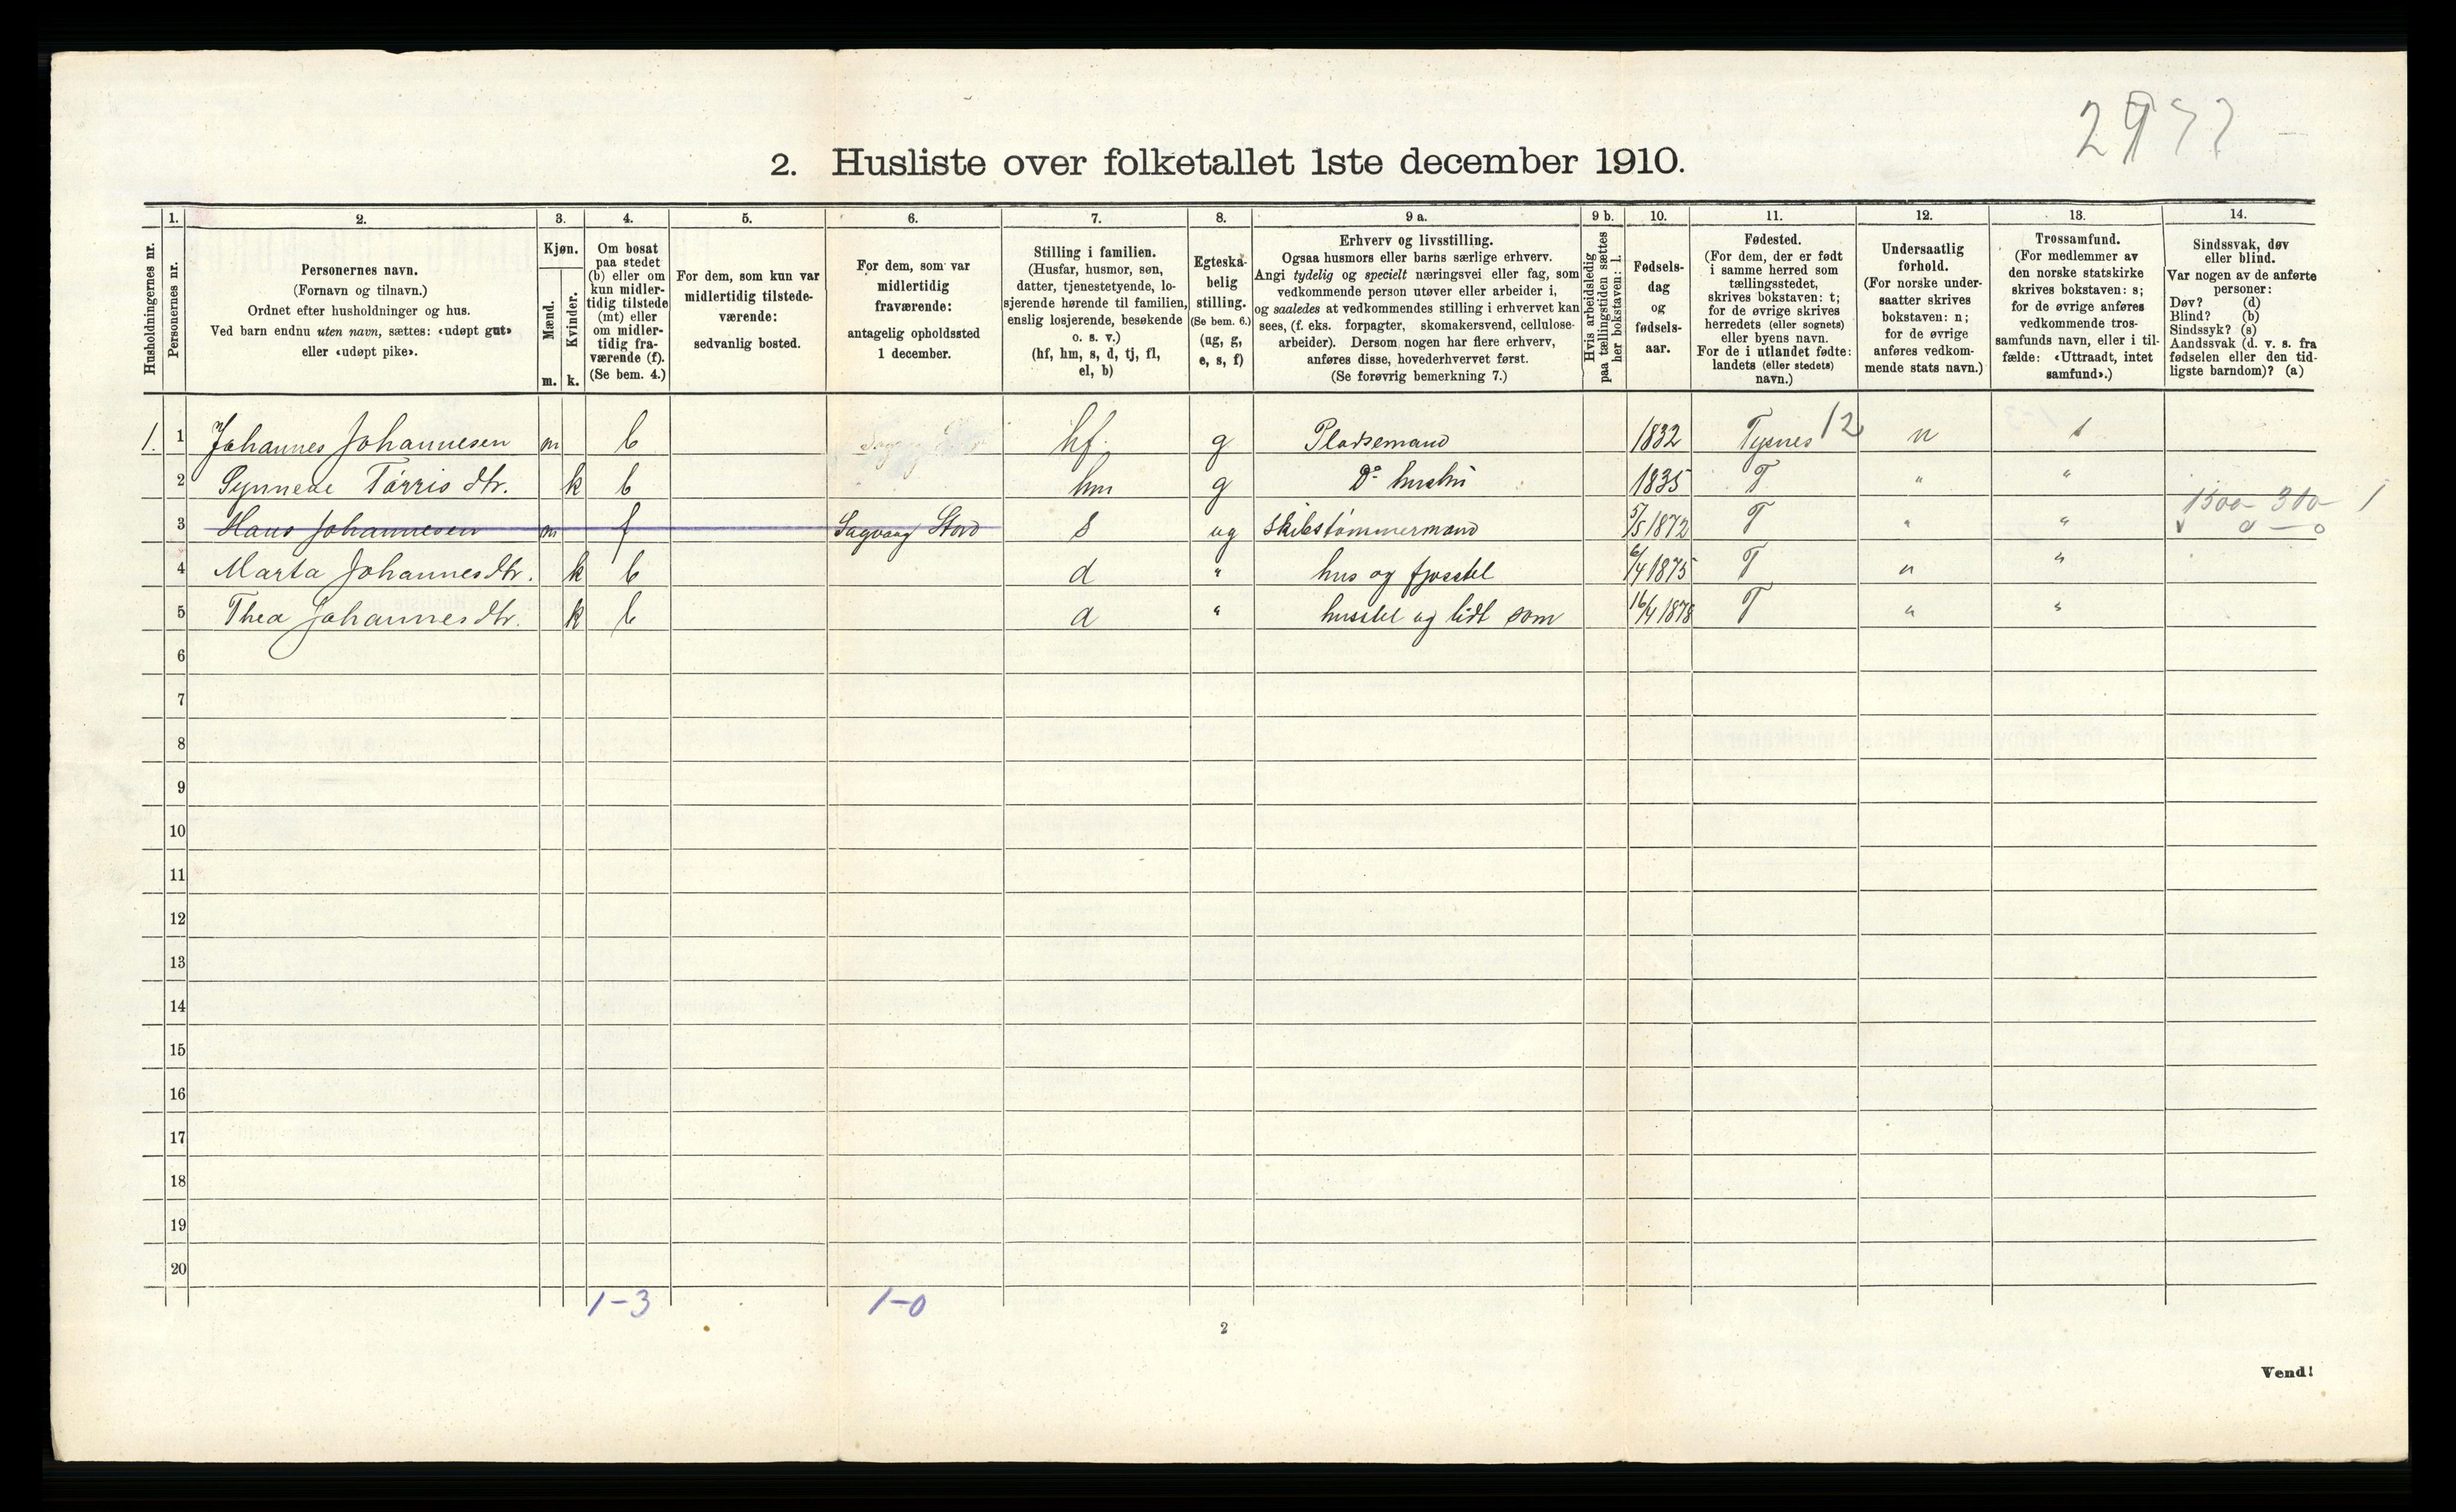 2. Husliste over folketallet 1ste december 1910.
Husholdningernes nr.
1.
Personernes nr.
2.
Personernes navn.
(Fornavn og tilnavn.)
Ordnet efter husholdninger og hus.
Ved barn endnu uten navn, sættes: «udøpt gut»
eller «udøpt pike».
3.
Kjøn.
Mænd.
m.
Kvinder.
k.
4.
Om bosat
paa stedet
(b) eller om
kun midler-
tidig tilstede
(mt) eller
om midler-
tidig fra-
værende (f).
(Se bem. 4.)
5.
For dem, som kun var
midlertidig tilstede-
værende:
sedvanlig bosted.
6.
For dem, som var
midlertidig
fraværende:
antagelig opholdssted
1 december.
7.
Stilling i familien.
(Husfar, husmor, søn,
datter, tjenestetyende, lo-
sjerende hørende til familien,
enslig losjerende, besøkende
o. s. v.)
(hf, hm, s, d, tj, fl,
el, b)
8.
Egteska-
belig
stilling.
(Se bem. 6.)
(ug, g,
e, s, f)
9 a.
Erhverv og livsstilling.
Ogsaa husmors eller barns særlige erhverv.
Angi tydelig og specielt næringsvei eller fag, som
vedkommende person utøver eller arbeider i,
og saaledes at vedkommendes stilling i erhvervet kan
sees, (f. eks. forpagter, skomakersvend, cellulose-
arbeider). Dersom nogen har flere erhverv,
anføres disse, hovederhvervet først.
(Se forøvrig bemerkning 7.)
9 b.
Hvis arbeidsledig
paa tællingstiden sættes
her bokstaven: l.
10.
Fødsels-
dag
og
fødsels-
aar.
11.
Fødested.
(For dem, der er født
i samme herred som
tællingsstedet,
skrives bokstaven: t;
for de øvrige skrives
herredets (eller sognets)
eller byens navn.
For de i utlandet fødte:
landets (eller stedets)
navn.)
12.
Undersaatlig
forhold.
(For norske under-
saatter skrives
bokstaven: n;
for de øvrige
anføres vedkom-
mende stats navn.)
13.
Trossamfund.
(For medlemmer av
den norske statskirke
skrives bokstaven: s;
for de øvrige anføres
vedkommende tros-
samfunds navn, eller i til-
fælde: «Uttraadt, intet
samfund».)
14.
Sindssvak, døv
eller blind.
Var nogen av de anførte
personer:
Døv? (d)
Blind? (b)
Sindssyk? (s)
Aandssvak (d. v. s. fra
fødselen eller den tid-
ligste barndom)? (a)
1. 1 Johannes Johannesen m b hf. g Pladsemand 1832 Tysnes 12 n s
2 Synneve Tørris dtr. k b hm g Do hustru 1835 T " "
3 Hans Johannesen m f Sagvaag Stord s ug Skibstømmermand 5/5 1872 T " " 1500-300- 1
4 Marta Johannesdtr. k b d " hus og fjosstel 6/4 1875 T " "
5 Thea Johannesdtr. k b d " husstel og lidt som 16/4 1878 T " "
6
7
8
9
10
11
12
13
14
15
16
17
18
19
20
1-3 1-0
2
Vend!